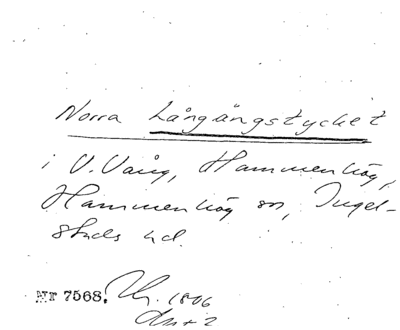 Norra Långängstycket
i V. Vång, Hammenhög,
Hammenhög sn, Ingel-
stads hd.
Nr 7568. 1806